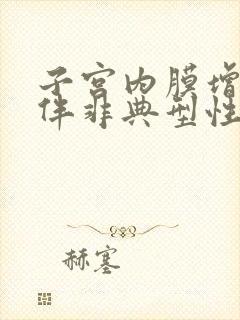 子宫内膜增
伴非典型性
赫塞